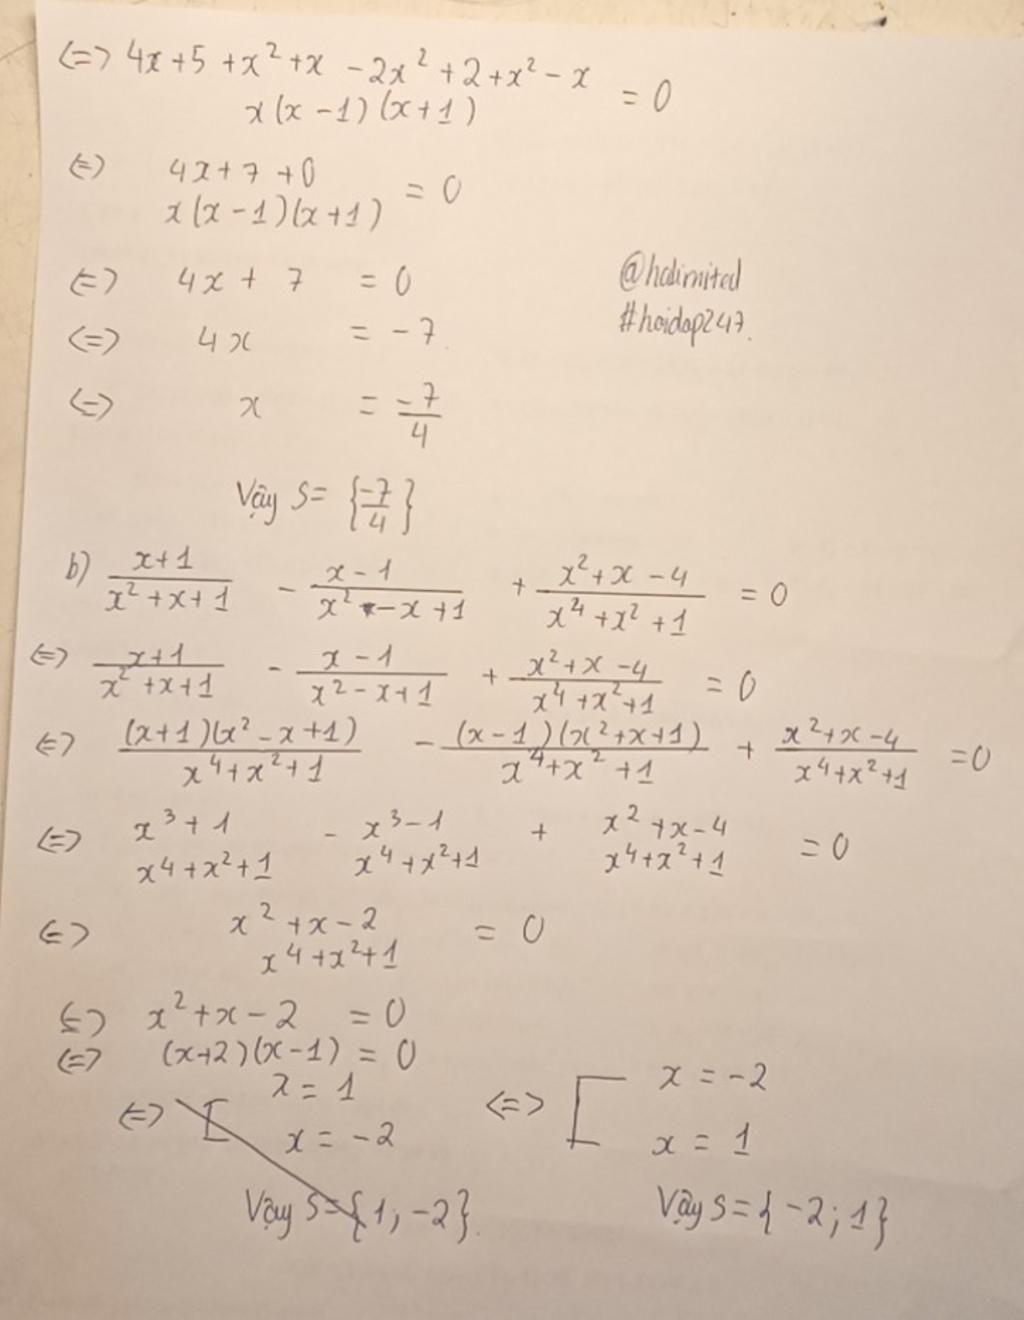 <=> 4x+5 +x² +x - 2x² +2 +x² - x = 0
x(x-1)(x+1)
<=> 4x+7 +0 = 0
x(x-1)(x+1)
<=> 4x + 7 = 0
@halimited
<=> 4x = -7
#hoidap247.
<=> x = -7/4
Vậy S= {-7/4}
b) x+1/x²+x+1 - x-1/x²-x+1 + x²+x-4/x⁴+x²+1 = 0
<=> x+1/x²+x+1 - x-1/x²-x+1 + x²+x-4/x⁴+x²+1 = 0
<=> (x+1)(x²-x+1)/x⁴+x²+1 - (x-1)(x²+x+1)/x⁴+x²+1 + x²+x-4/x⁴+x²+1 = 0
<=> x³+1 - x³-1 + x²+x-4 = 0
x⁴+x²+1 x⁴+x²+1 x⁴+x²+1
<=> x²+x-2 = 0
x⁴+x²+1
<=> x²+x-2 = 0
<=> (x+2)(x-1) = 0
<=> [ x = 1
x = -2
Vậy S={1; -2}.
<=> [ x = -2
x = 1
Vậy S={-2; 1}